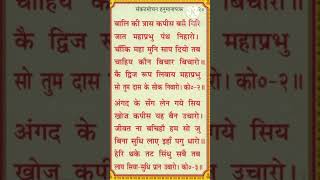 संकटमोचन हनुमानाष्टक
बालि की त्रास कपीस बसै गिरि
जात महाप्रभु पंथ निहारो।
चौंकि महा मुनि साप दियो तब
चाहिय कौन बिचार बिचारो॥
कै द्विज रूप लिवाय महाप्रभु
सो तुम दास के सोक निवारो। को०-२॥
अंगद के सँग लेन गये सिय
खोज कपीस यह बैन उचारो।
जीवत ना बचिहौ हम सो जु
बिना सुधि लाए इहाँ पगु धारो॥
हेरि थके तट सिंधु सबै तब
लाय सिया-सुधि प्रान उबारो। को०-३॥